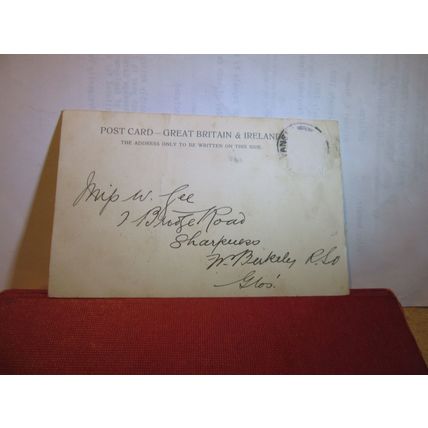 POST CARD — GREAT BRITAIN & IRELAND
THE ADDRESS ONLY TO BE WRITTEN ON THIS SIDE.
Miss W. Gee
Bridge Road
Sharpness
Nr Berkeley R.S.O
Glos.